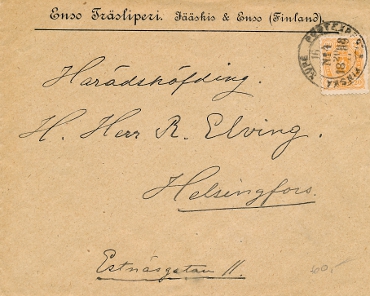 Enso Träsliperi. Jääskis & Enso (Finland)
KUPÉ POSTEXP.
Häradshöfding.
H. Herr R. Elving.
Helsingfors.
Estnäsgatan 11.
100,-